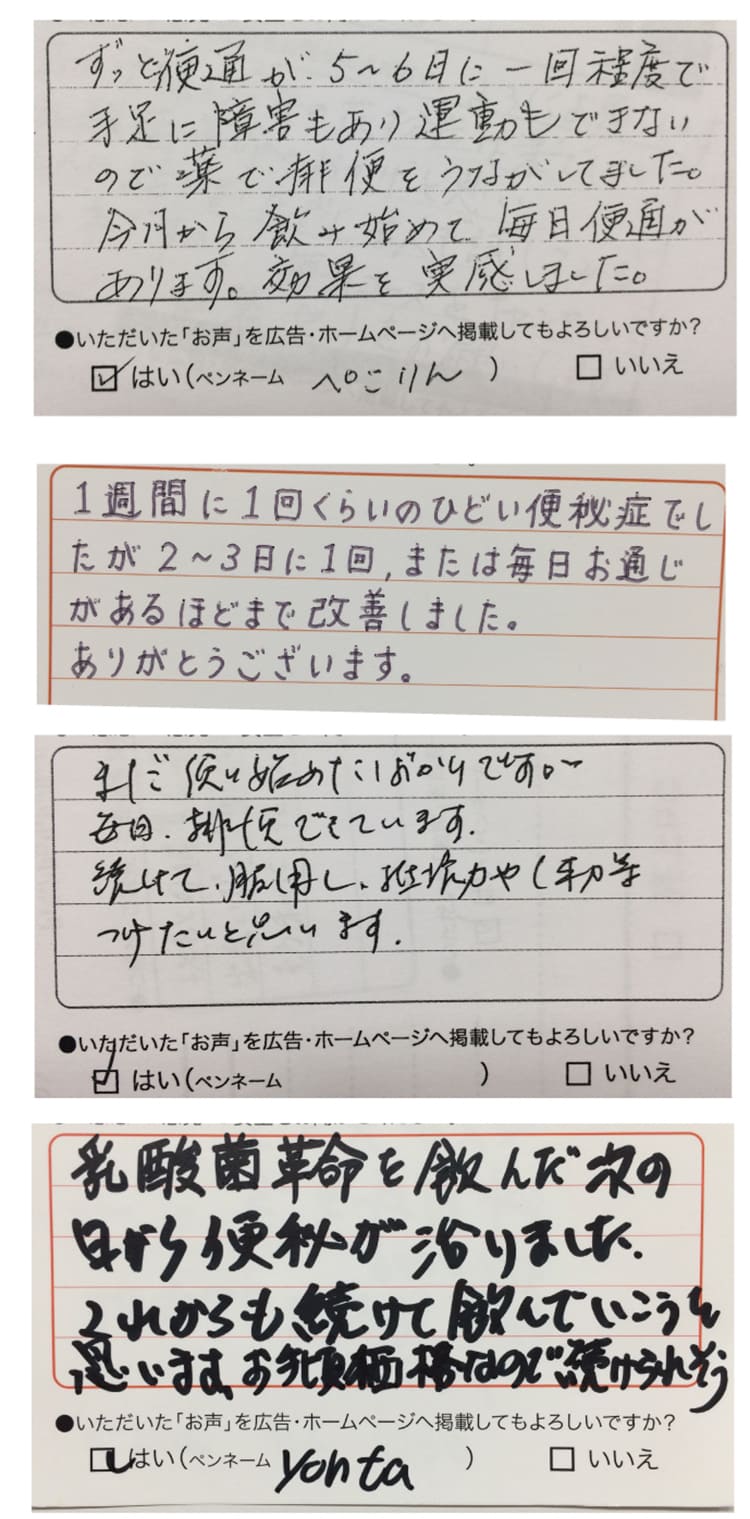 ずっと便通が、5〜6日に一回程度で
手足に障害もあり運動もできない
ので薬で排便をうながしてました。
今月から飲み始めて毎日便通が
あります。効果を実感しました。
●いただいた「お声」を広告・ホームページへ掲載してもよろしいですか？
☑ はい（ペンネーム ぺこりん ） □ いいえ
1週間に1回くらいのひどい便秘症でし
たが2〜3日に1回,または毎日お通じ
があるほどまで改善しました。
ありがとうございます。
まだ使い始めたばかりですが〜
毎日、排便できています。
続けて、服用し、抵抗力や
つけたいと思います。
●いただいた「お声」を広告・ホームページへ掲載してもよろしいですか？
☑ はい（ペンネーム ） □ いいえ
乳酸菌革命を飲んだ次の
日から便秘が治りました。
これからも続けて飲んでいこうと
思います。お手頃価格なので続けられそう
●いただいた「お声」を広告・ホームページへ掲載してもよろしいですか？
☑ はい（ペンネーム yonta ） □ いいえ